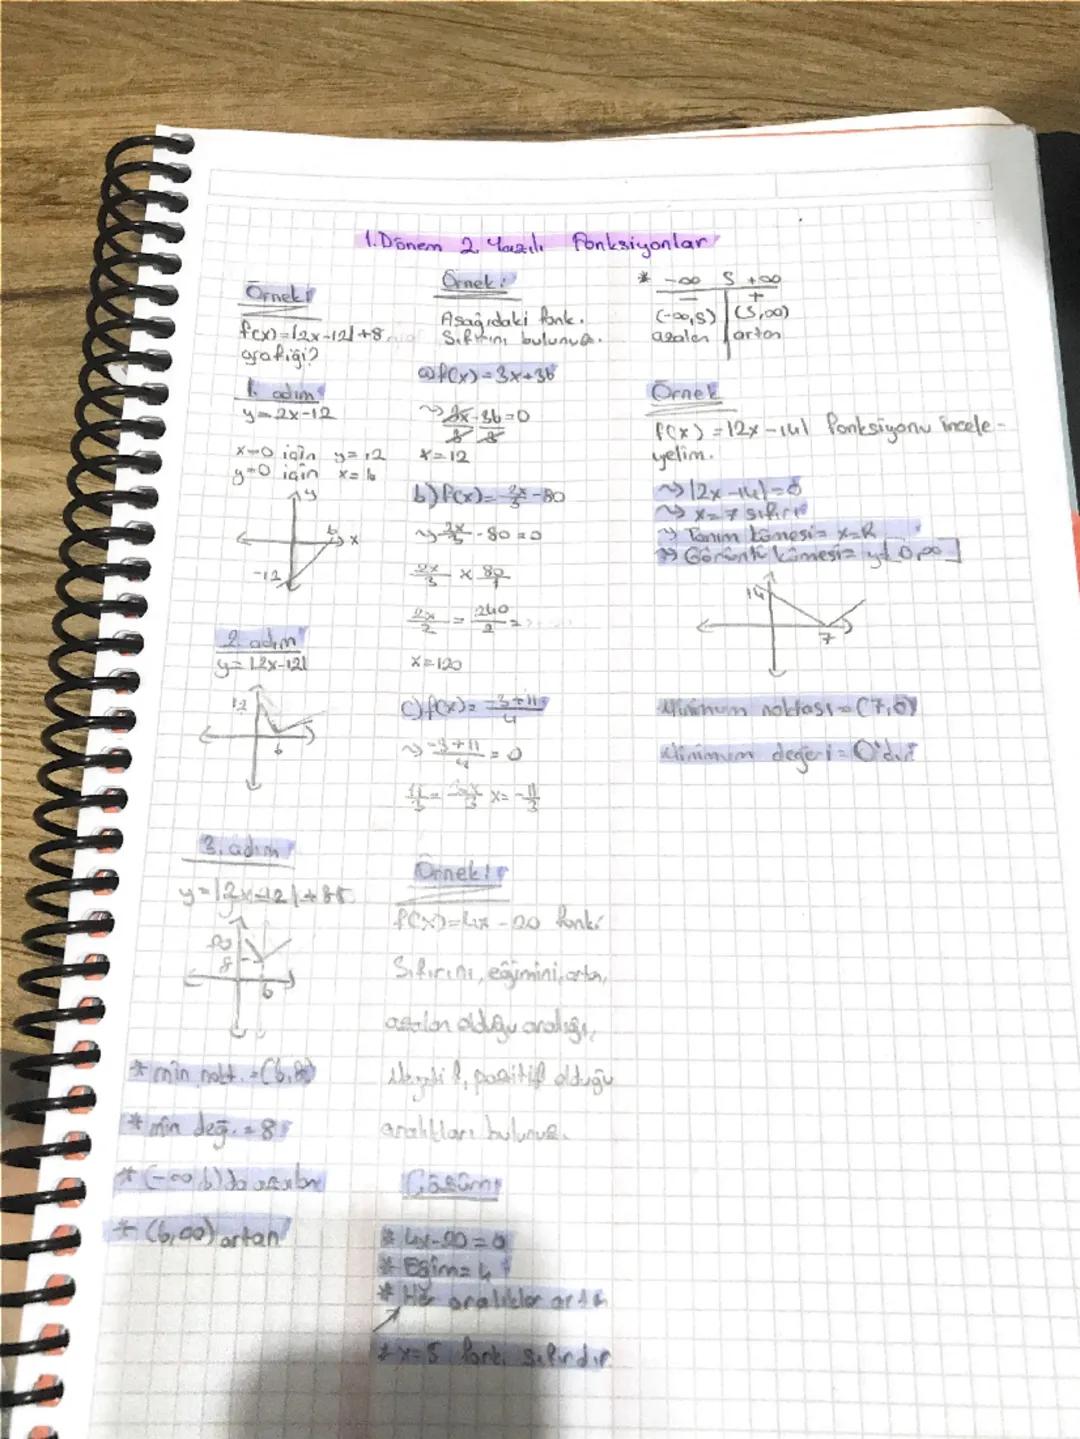 1.Dönem 2. Yazılı Fonksiyonlar
Örnek:
f(x)=|2x-12|+8
grafiği?
1. adım
y=2x-12
x=0 için y=12
y=0 için x=6
y
6 x
-12
2. adım
y=|2x-12|
12
6
3. adım
y=|2x-12|+8
20
8
6
* min nokt. =(6,8)
* min değ. = 8
* (-∞,6)da azalan
* (6,∞) artan
Örnek:
Aşağıdaki fonk.
Sıfırını bulunuz.
a) f(x)=3x+36
3x-36=0
3 3
x=12
b) f(x)=2x/3-80
2x/3-80=0
2x/3 × 80/1
2x/2 = 240/2 =
x=120
c) f(x)= -3+11/4
-3+11/4 = 0
x=-11/3
Örnek:
f(x)=4x-20 fonk.
Sıfırını, eğimini, artan,
azalan olduğu aralığı,
pozitif olduğu
aralıkları bulunuz.
Çözüm:
* 4x-20=0
* Eğim=4
* Her aralıklar artan
* x=5 fonk. sıfırıdır
* -∞ 5 +∞
- +
(-∞,5) (5,∞)
azalan artan
Örnek
f(x)=|2x-14| fonksiyonu incele-
yelim.
|2x-14|=0
x=7 sıfırı
Tanım kümesi= x=R
Görüntü kümesi= y[0,∞]
14
7
Minimum noktası=(7,0)
Minimum değeri=0'dır